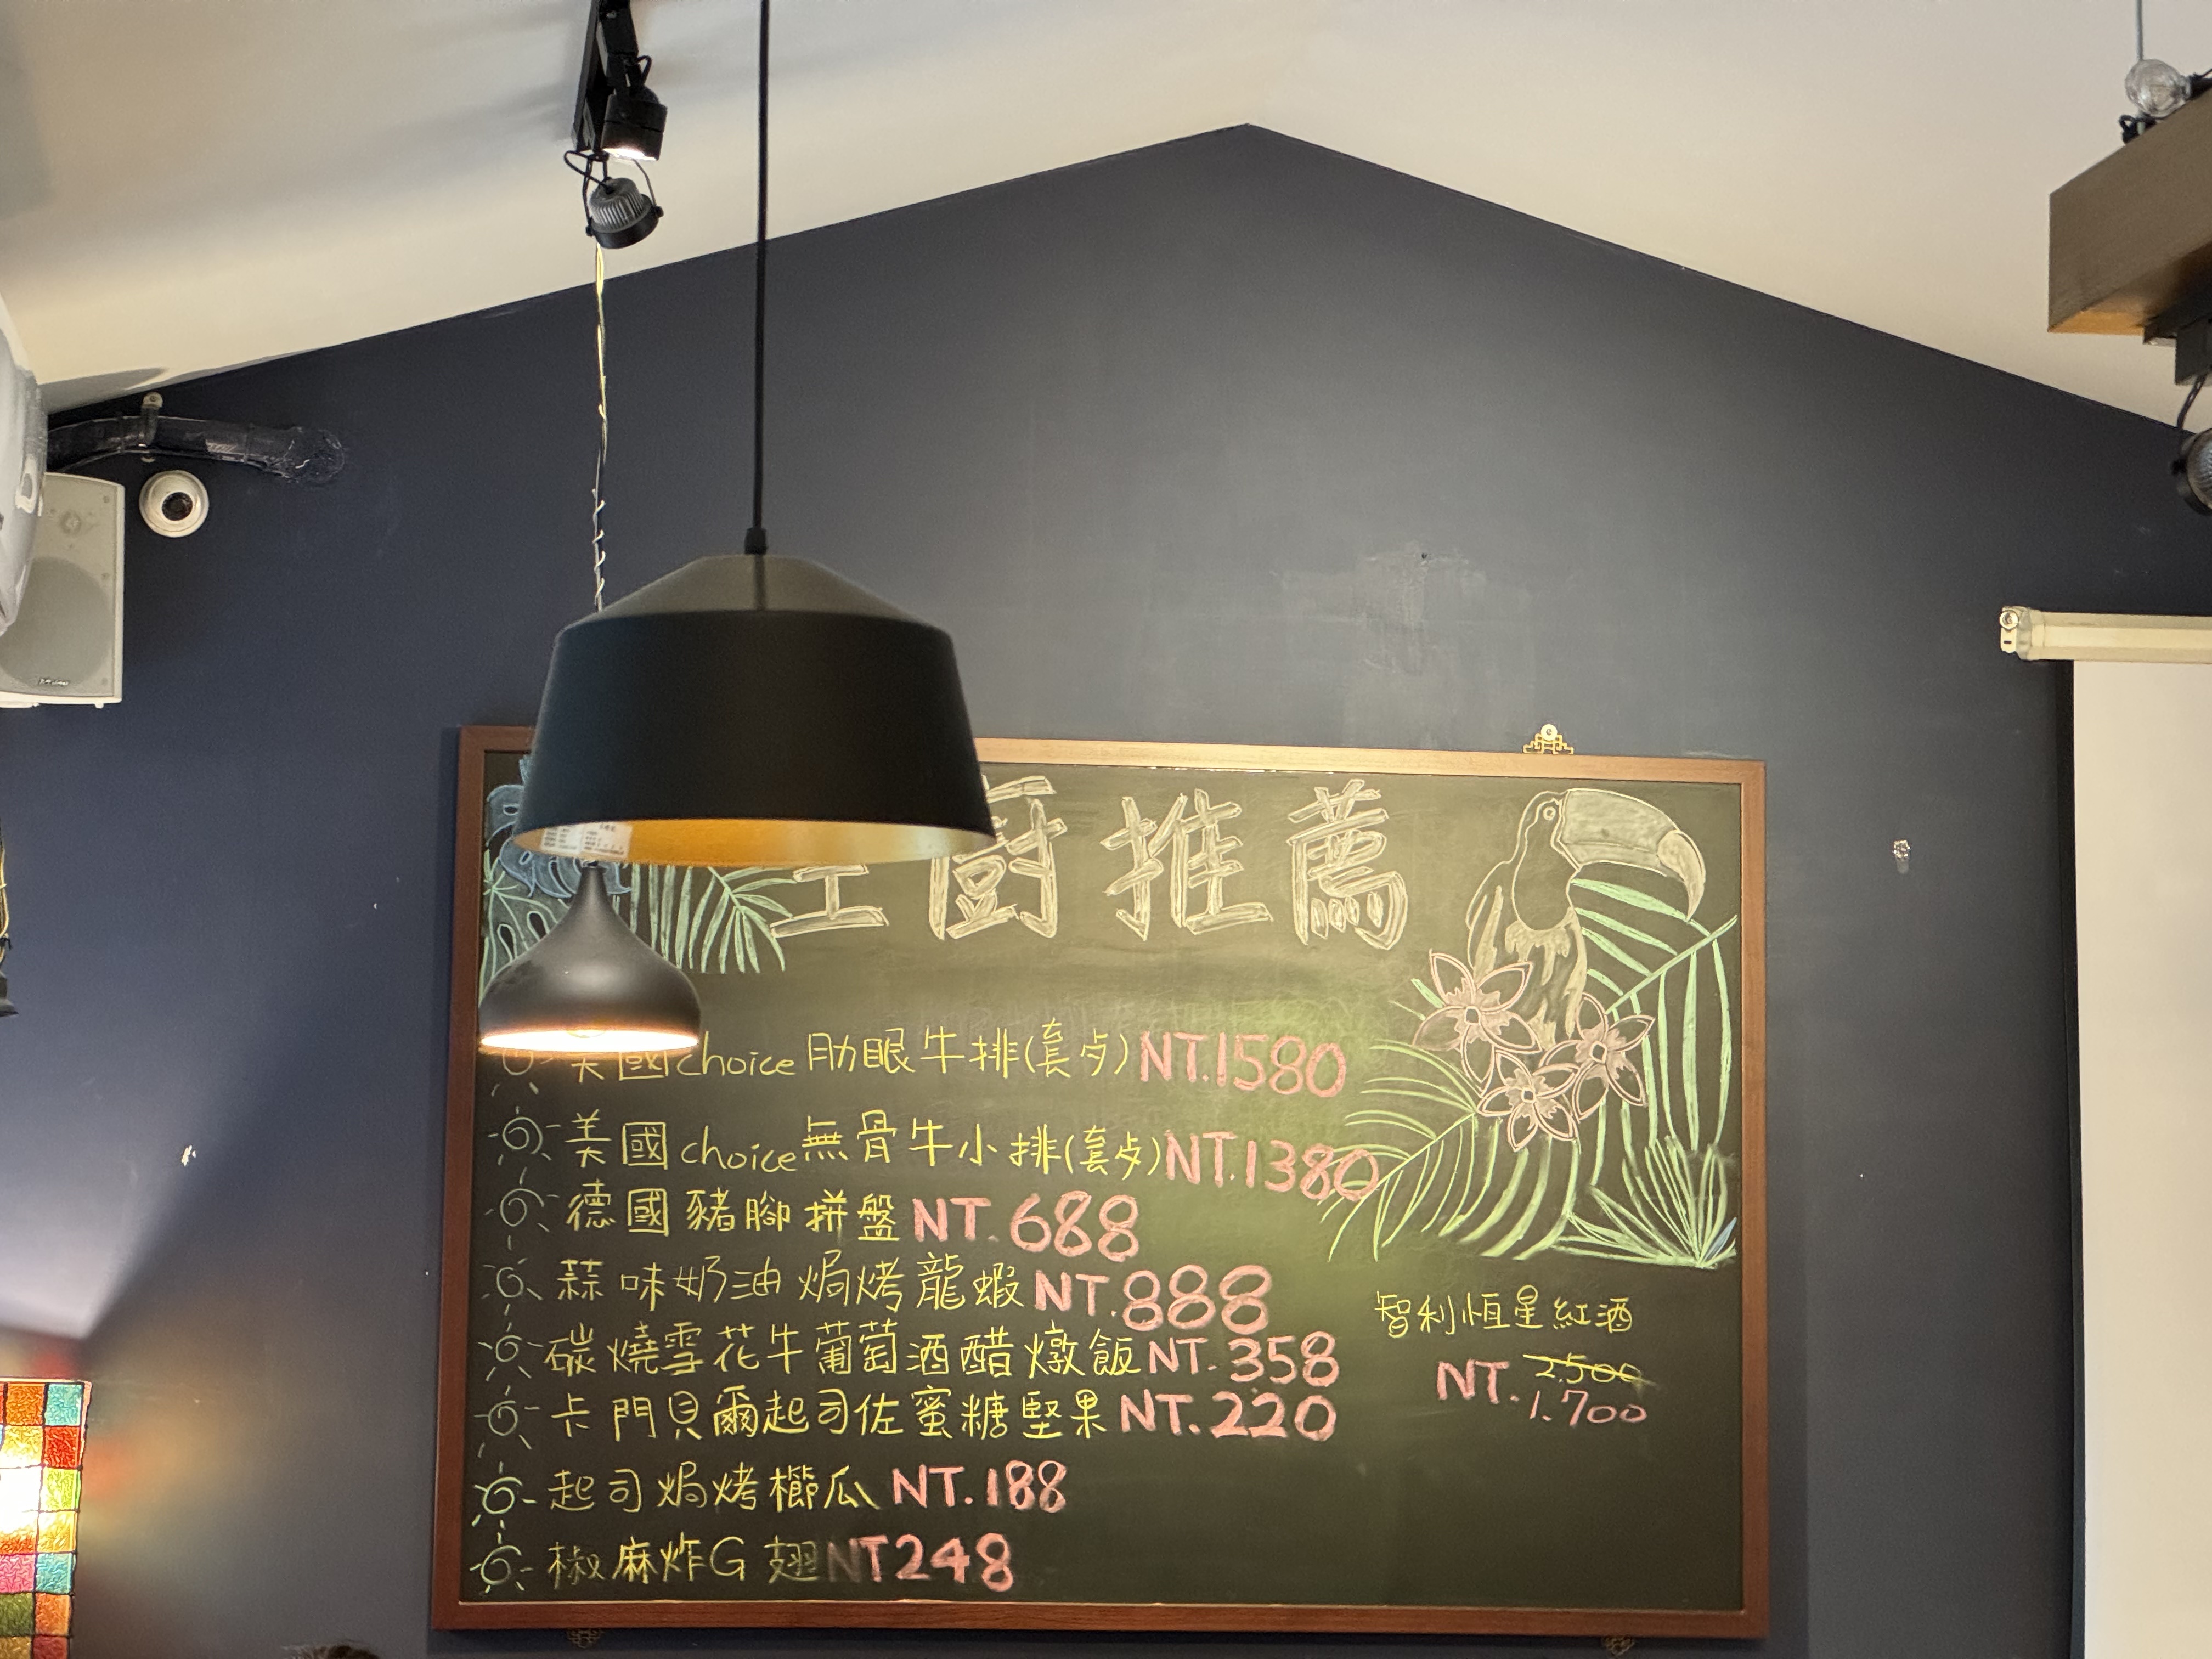 廚推薦
美國choice肋眼牛排(套歺)NT.1580
美國choice無骨牛小排(套歺)NT.1380
德國豬腳拼盤NT.688
蒜味奶油焗烤龍蝦NT.888
碳燒雪花牛葡萄酒醋燉飯NT.358
卡門貝爾起司佐蜜糖堅果NT.220
起司焗烤櫛瓜NT.188
椒麻炸G翅NT248
智利恆星紅酒
NT.2.500
1.700